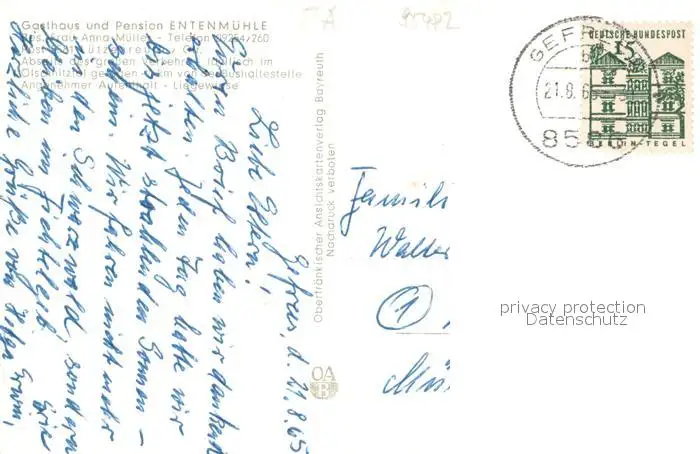 Gasthaus und Pension ENTENMÜHLE
Bes. Frau Anna Müller - Telefon 09254/260
Post 8581 Lützenreuth
Abseits des großen Verkehrs, idyllisch im
Ölschnitztal gelegen - km von der Bushaltestelle
Angenehmer Aufenthalt - Liegewiese
A
Gefrees, d. 21.8.65
Liebe Eltern!
Euren Brief haben wir dankend
erhalten. Jeden Tag hatte wir
bis jetzt strahlenden Sonnen-
Wir fahren nicht mehr
in den Schwarzwald, sondern
bleiben im Fichtelgeb.
Herzliche Grüße von
Oberfränkischer Ansichtskartenverlag Bayreuth
Nachdruck verboten
OA
B
GEFR
21.8.65
85
DEUTSCHE BUNDESPOST
15
BERLIN-TEGEL
Famili
Walter
1
Mün
privacy protection
Datenschutz